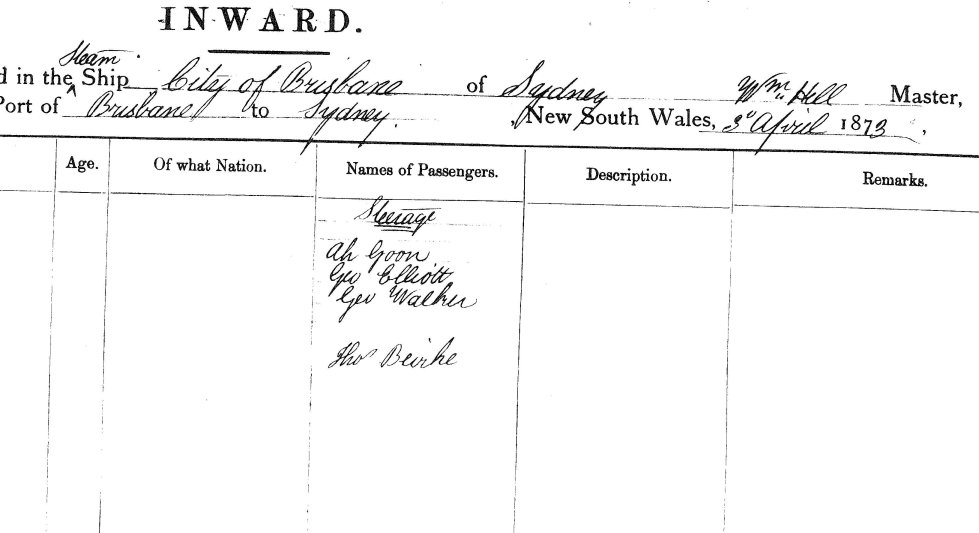 INWARD.
Steam
d in the Ship City of Brisbane of Sydney Wm. Hill Master,
Port of Brisbane to Sydney. , New South Wales, 3d April 1873 ,
Age. Of what Nation. Names of Passengers. Description. Remarks.
Steerage
Ah Goon
Geo Elliott
Geo Walker
Thos